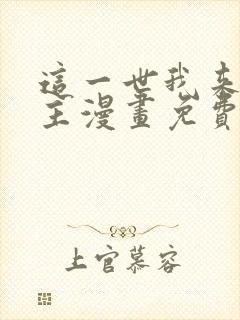 這一世我来
主漫畫免費
上官慕容